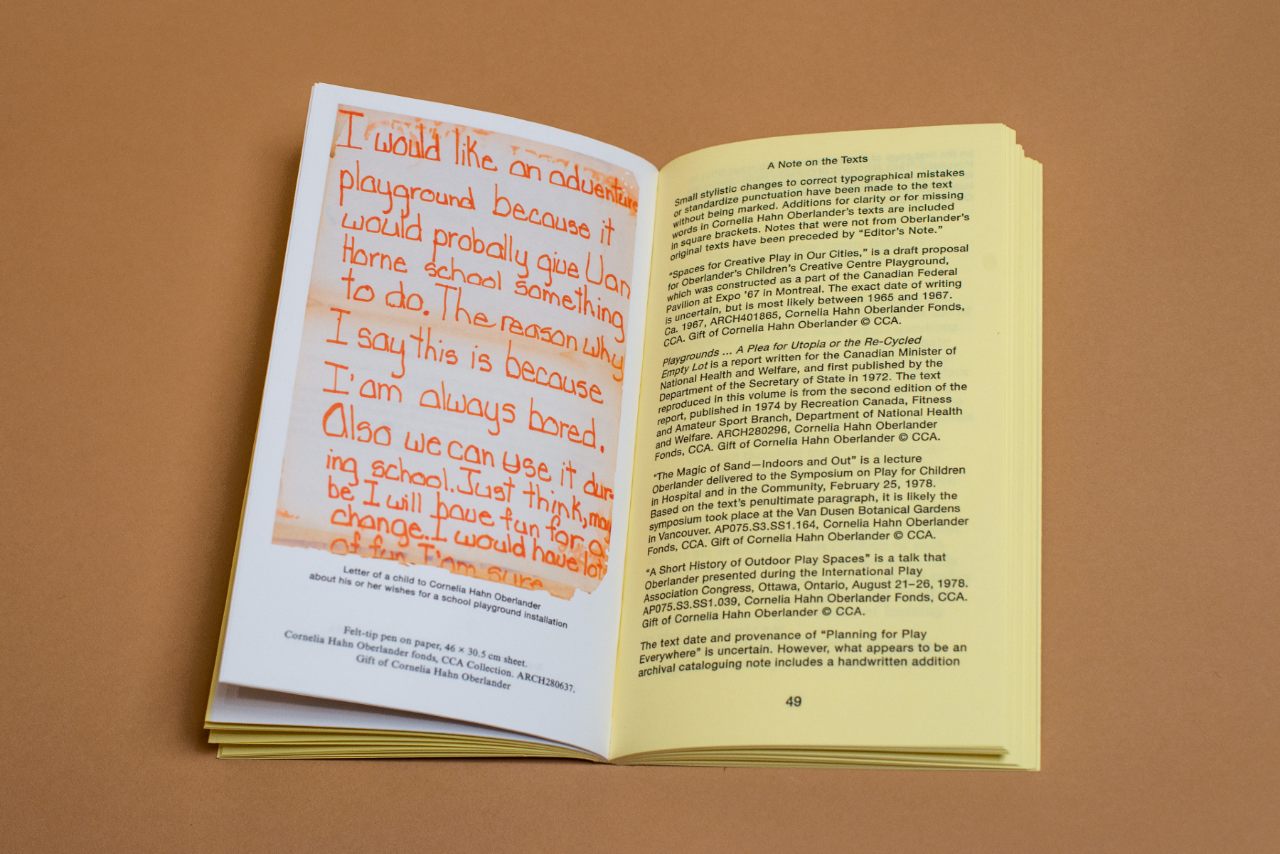 I would like an adventure
playground because it
would probally give Van
Horne school something
to do. The reason why
I say this is because
I'am always bored.
Also we can use it dur-
ing school. Just think, may
be I will have fun for a
change. I would have lots
of fun. I'am sure
Letter of a child to Cornelia Hahn Oberlander
about his or her wishes for a school playground installation
Felt-tip pen on paper, 46 × 30.5 cm sheet.
Cornelia Hahn Oberlander fonds, CCA Collection. ARCH280637.
Gift of Cornelia Hahn Oberlander
A Note on the Texts
Small stylistic changes to correct typographical mistakes
or standardize punctuation have been made to the text
without being marked. Additions for clarity or for missing
words in Cornelia Hahn Oberlander's texts are included
in square brackets. Notes that were not from Oberlander's
original texts have been preceded by “Editor's Note.”
“Spaces for Creative Play in Our Cities,” is a draft proposal
for Oberlander's Children's Creative Centre Playground,
which was constructed as a part of the Canadian Federal
Pavilion at Expo '67 in Montreal. The exact date of writing
is uncertain, but is most likely between 1965 and 1967.
Ca. 1967, ARCH401865, Cornelia Hahn Oberlander Fonds,
CCA. Gift of Cornelia Hahn Oberlander © CCA.
Playgrounds ... A Plea for Utopia or the Re-Cycled
Empty Lot is a report written for the Canadian Minister of
National Health and Welfare, and first published by the
Department of the Secretary of State in 1972. The text
reproduced in this volume is from the second edition of the
report, published in 1974 by Recreation Canada, Fitness
and Amateur Sport Branch, Department of National Health
and Welfare. ARCH280296, Cornelia Hahn Oberlander
Fonds, CCA. Gift of Cornelia Hahn Oberlander © CCA.
“The Magic of Sand—Indoors and Out” is a lecture
Oberlander delivered to the Symposium on Play for Children
in Hospital and in the Community, February 25, 1978.
Based on the text's penultimate paragraph, it is likely the
symposium took place at the Van Dusen Botanical Gardens
in Vancouver. AP075.S3.SS1.164, Cornelia Hahn Oberlander
Fonds, CCA. Gift of Cornelia Hahn Oberlander © CCA.
“A Short History of Outdoor Play Spaces” is a talk that
Oberlander presented during the International Play
Association Congress, Ottawa, Ontario, August 21–26, 1978.
AP075.S3.SS1.039, Cornelia Hahn Oberlander Fonds, CCA.
Gift of Cornelia Hahn Oberlander © CCA.
The text date and provenance of “Planning for Play
Everywhere” is uncertain. However, what appears to be an
archival cataloguing note includes a handwritten addition
49